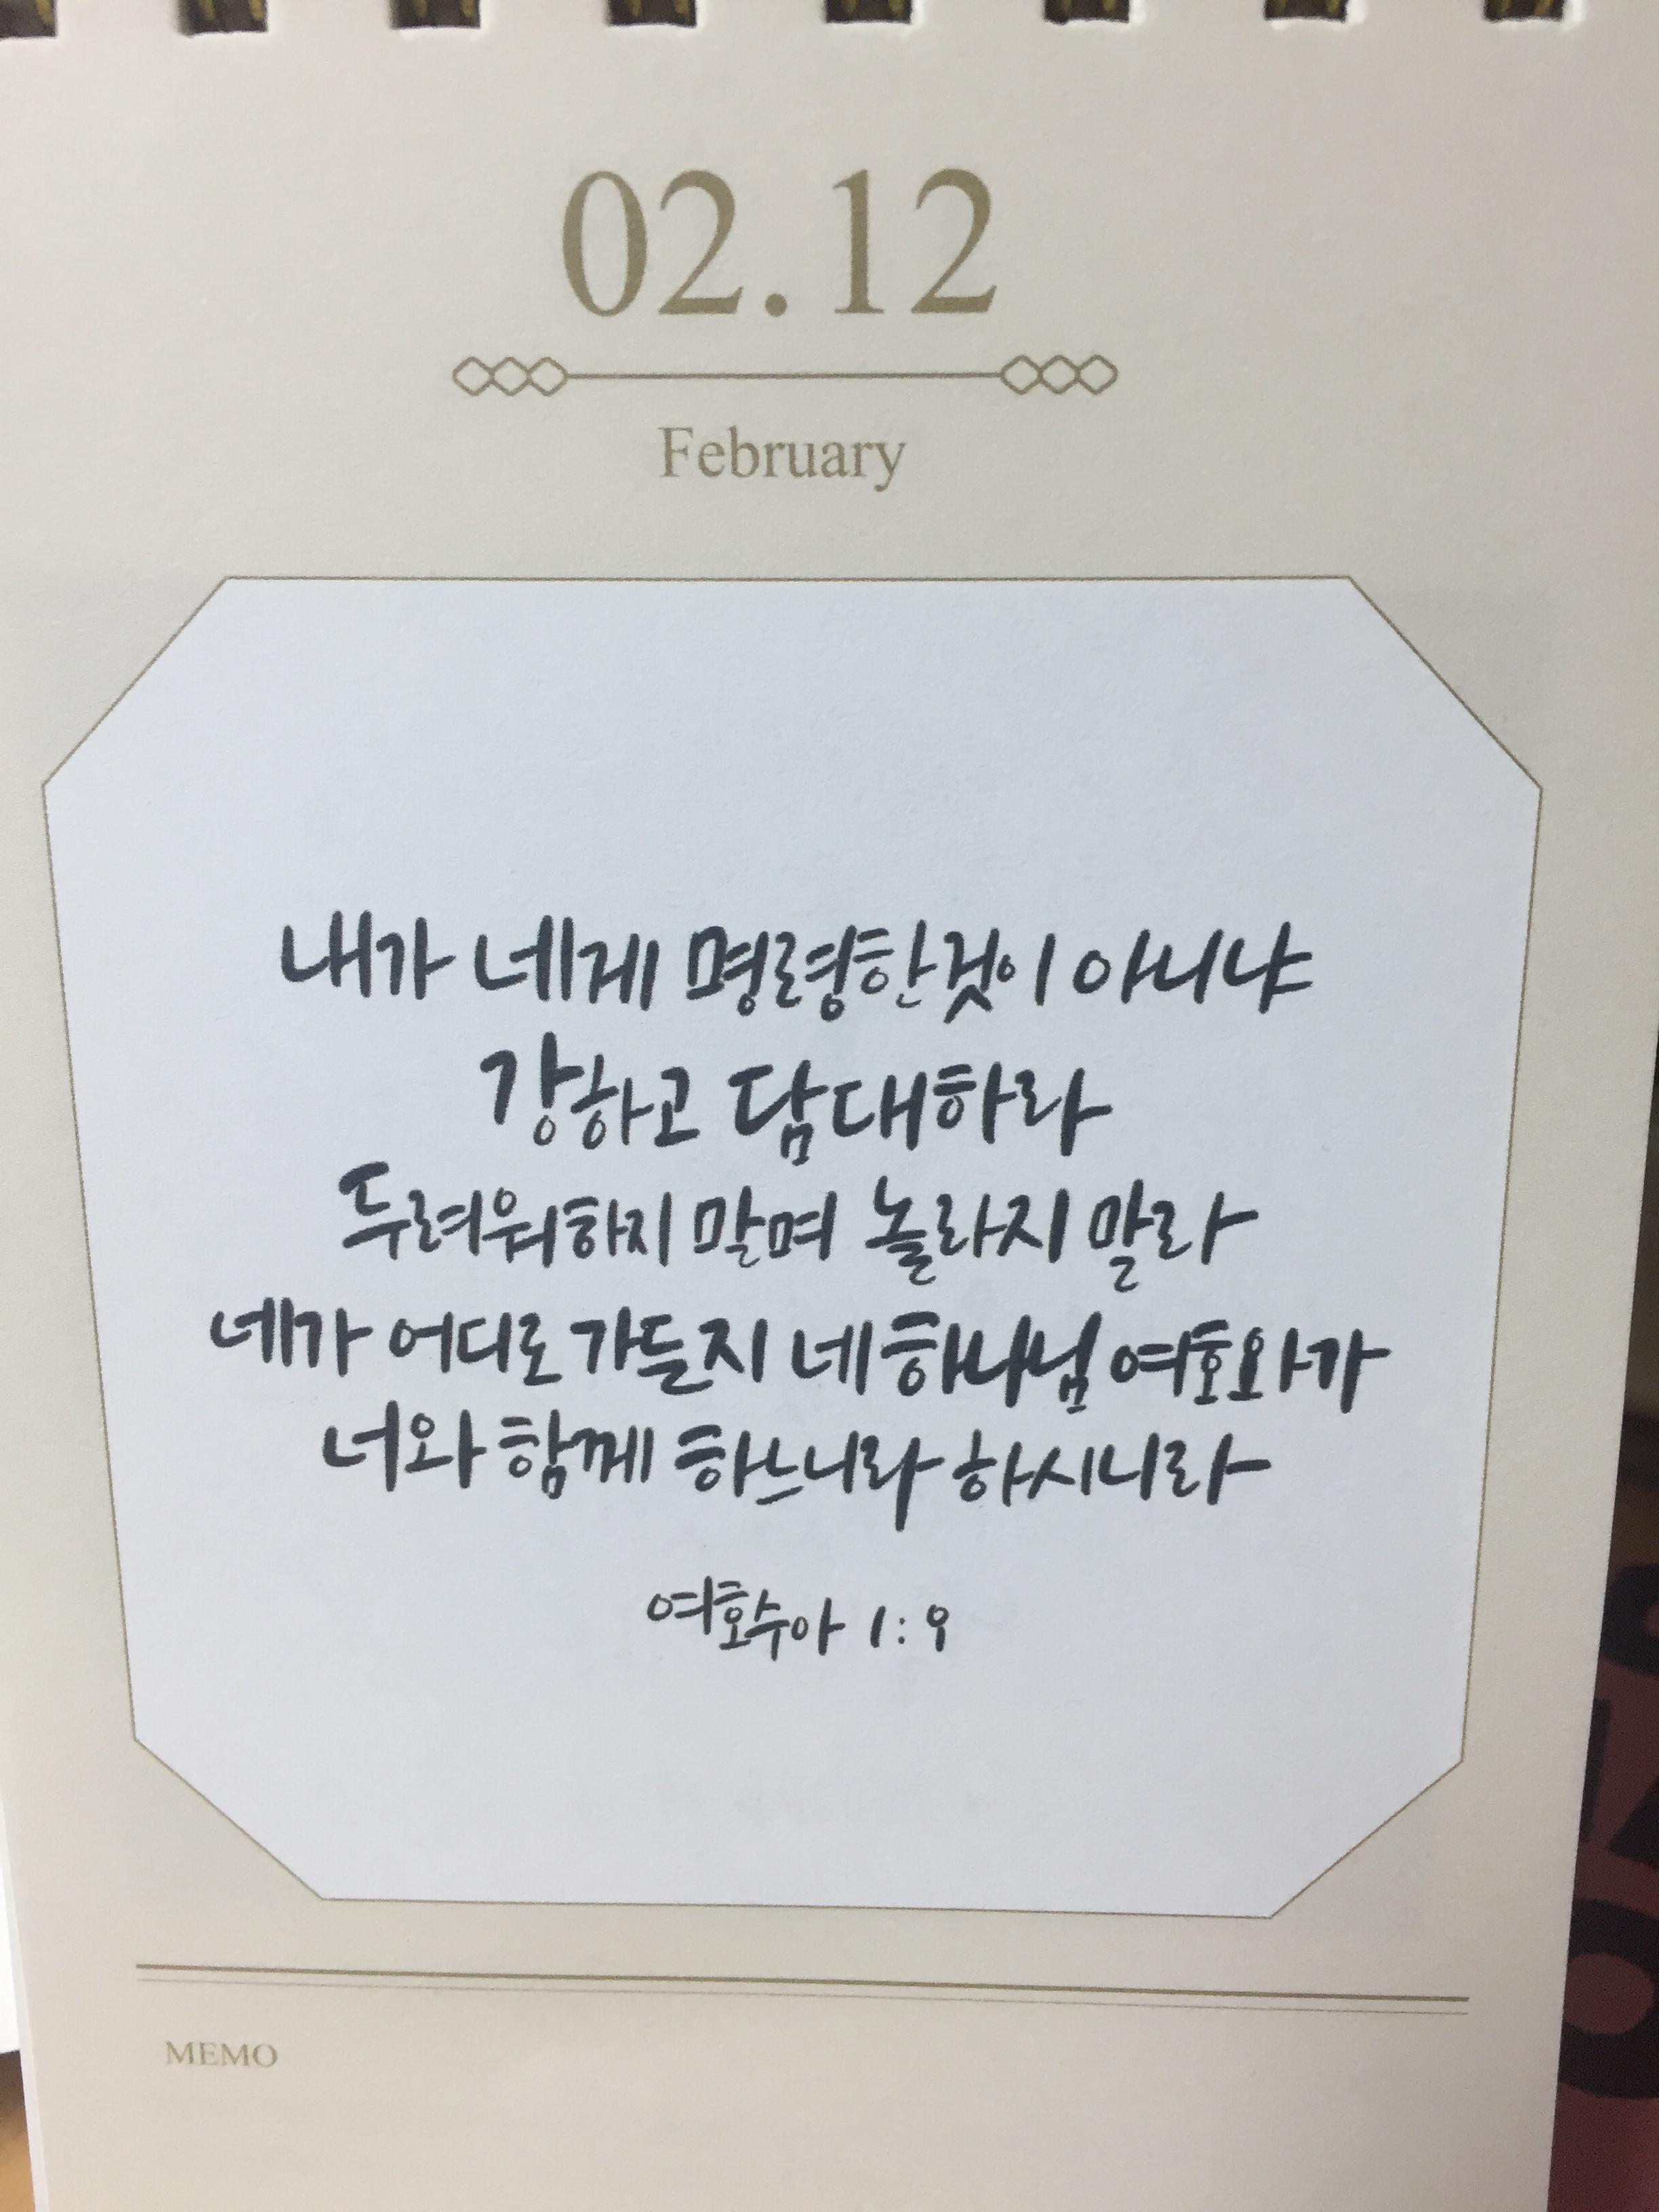 02.12
February
내가 네게 명령한것이 아니냐
강하고 담대하라
두려워하지 말며 놀라지 말라
네가 어디로 가든지 네 하나님 여호와가
너와 함께 하느니라 하시니라
여호수아 1:9
MEMO